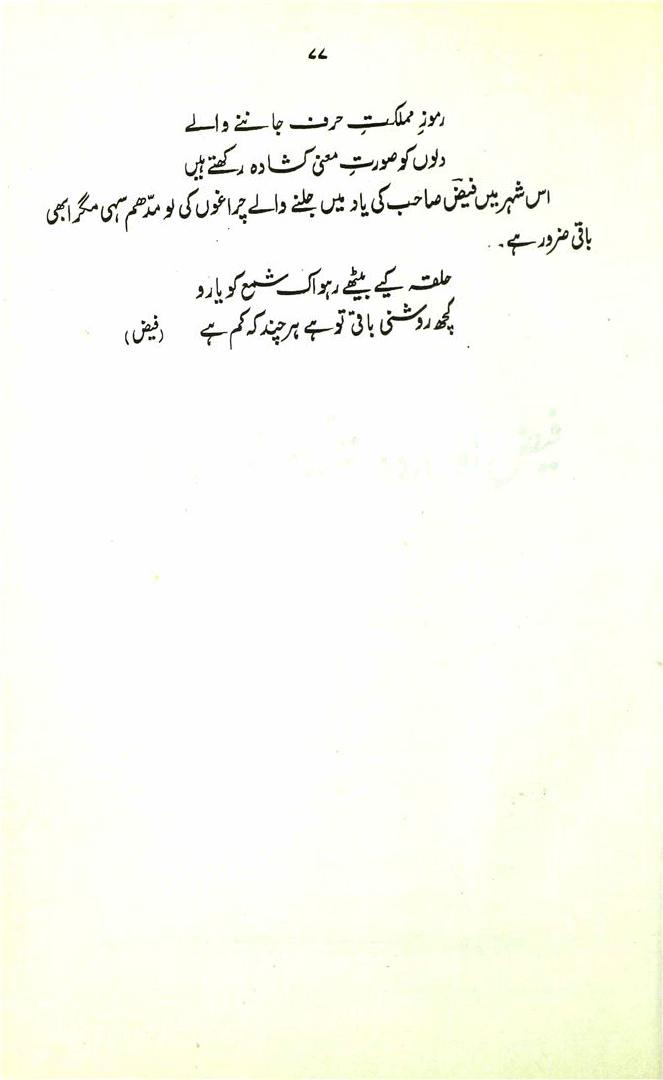 ۷۷
رموزِ مملکتِ حرف جاننے والے
دلوں کو صورتِ معنی کشادہ رکھتے ہیں
اس شہر میں فیضؔ صاحب کی یاد میں جلنے والے چراغوں کی لو مدّھم سہی مگر ابھی
باقی ضرور ہے۔
حلقہ کیے بیٹھے رہو اک شمع کو یارو
کچھ روشنی باقی تو ہے ہر چند کہ کم ہے (فیض)